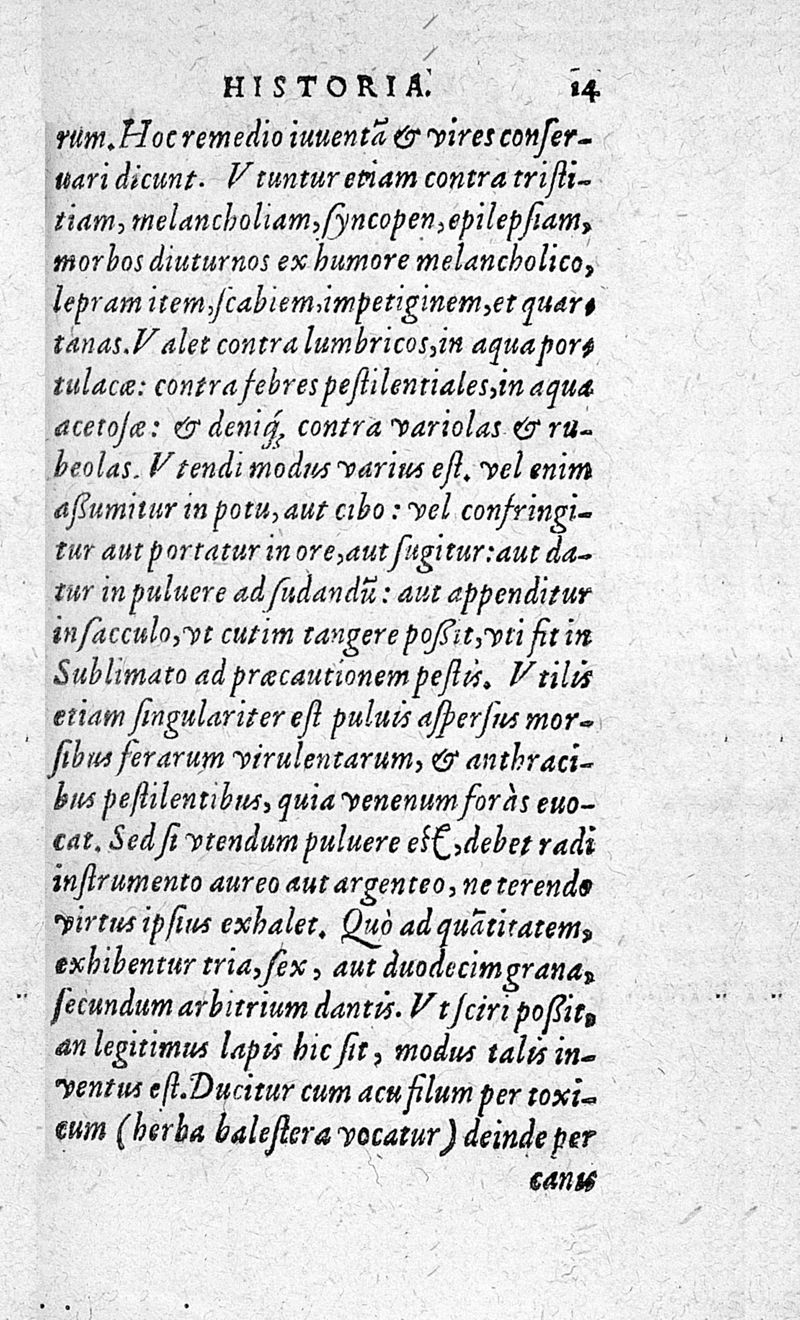 HISTORIA. 14
rum. Hoc remedio iuuentã & vires conſer-
uari dicunt. Vtuntur etiam contra triſti-
tiam, melancholiam, ſyncopen, epilepſiam,
morbos diuturnos ex humore melancholico,
lepram item, ſcabiem, impetiginem, et quar-
tanas. Valet contra lumbricos, in aqua por-
tulacæ: contra febres peſtilentiales, in aqua
acetoſæ: & deniq́; contra variolas & ru-
beolas. Vtendi modus varius eſt. vel enim
aßumitur in potu, aut cibo: vel confringi-
tur aut portatur in ore, aut ſugitur: aut da-
tur in puluere ad ſudandũ: aut appenditur
in ſacculo, vt cutim tangere poßit, vti fit in
Sublimato ad præcautionem peſtis. Vtilis
etiam ſingulariter eſt puluis aſperſus mor-
ſibus ferarum virulentarum, & anthraci-
bus peſtilentibus, quia venenum foràs euo-
cat. Sed ſi vtendum puluere eſt, debet radi
inſtrumento aureo aut argenteo, ne terendo
virtus ipſius exhalet. Quò ad quãtitatem,
exhibentur tria, ſex, aut duodecim grana,
ſecundum arbitrium dantis. Vt ſciri poßit,
an legitimus lapis hic ſit, modus talis in-
ventus eſt. Ducitur cum acu filum per toxi-
cum (herba baleſtera vocatur) deinde per
canis